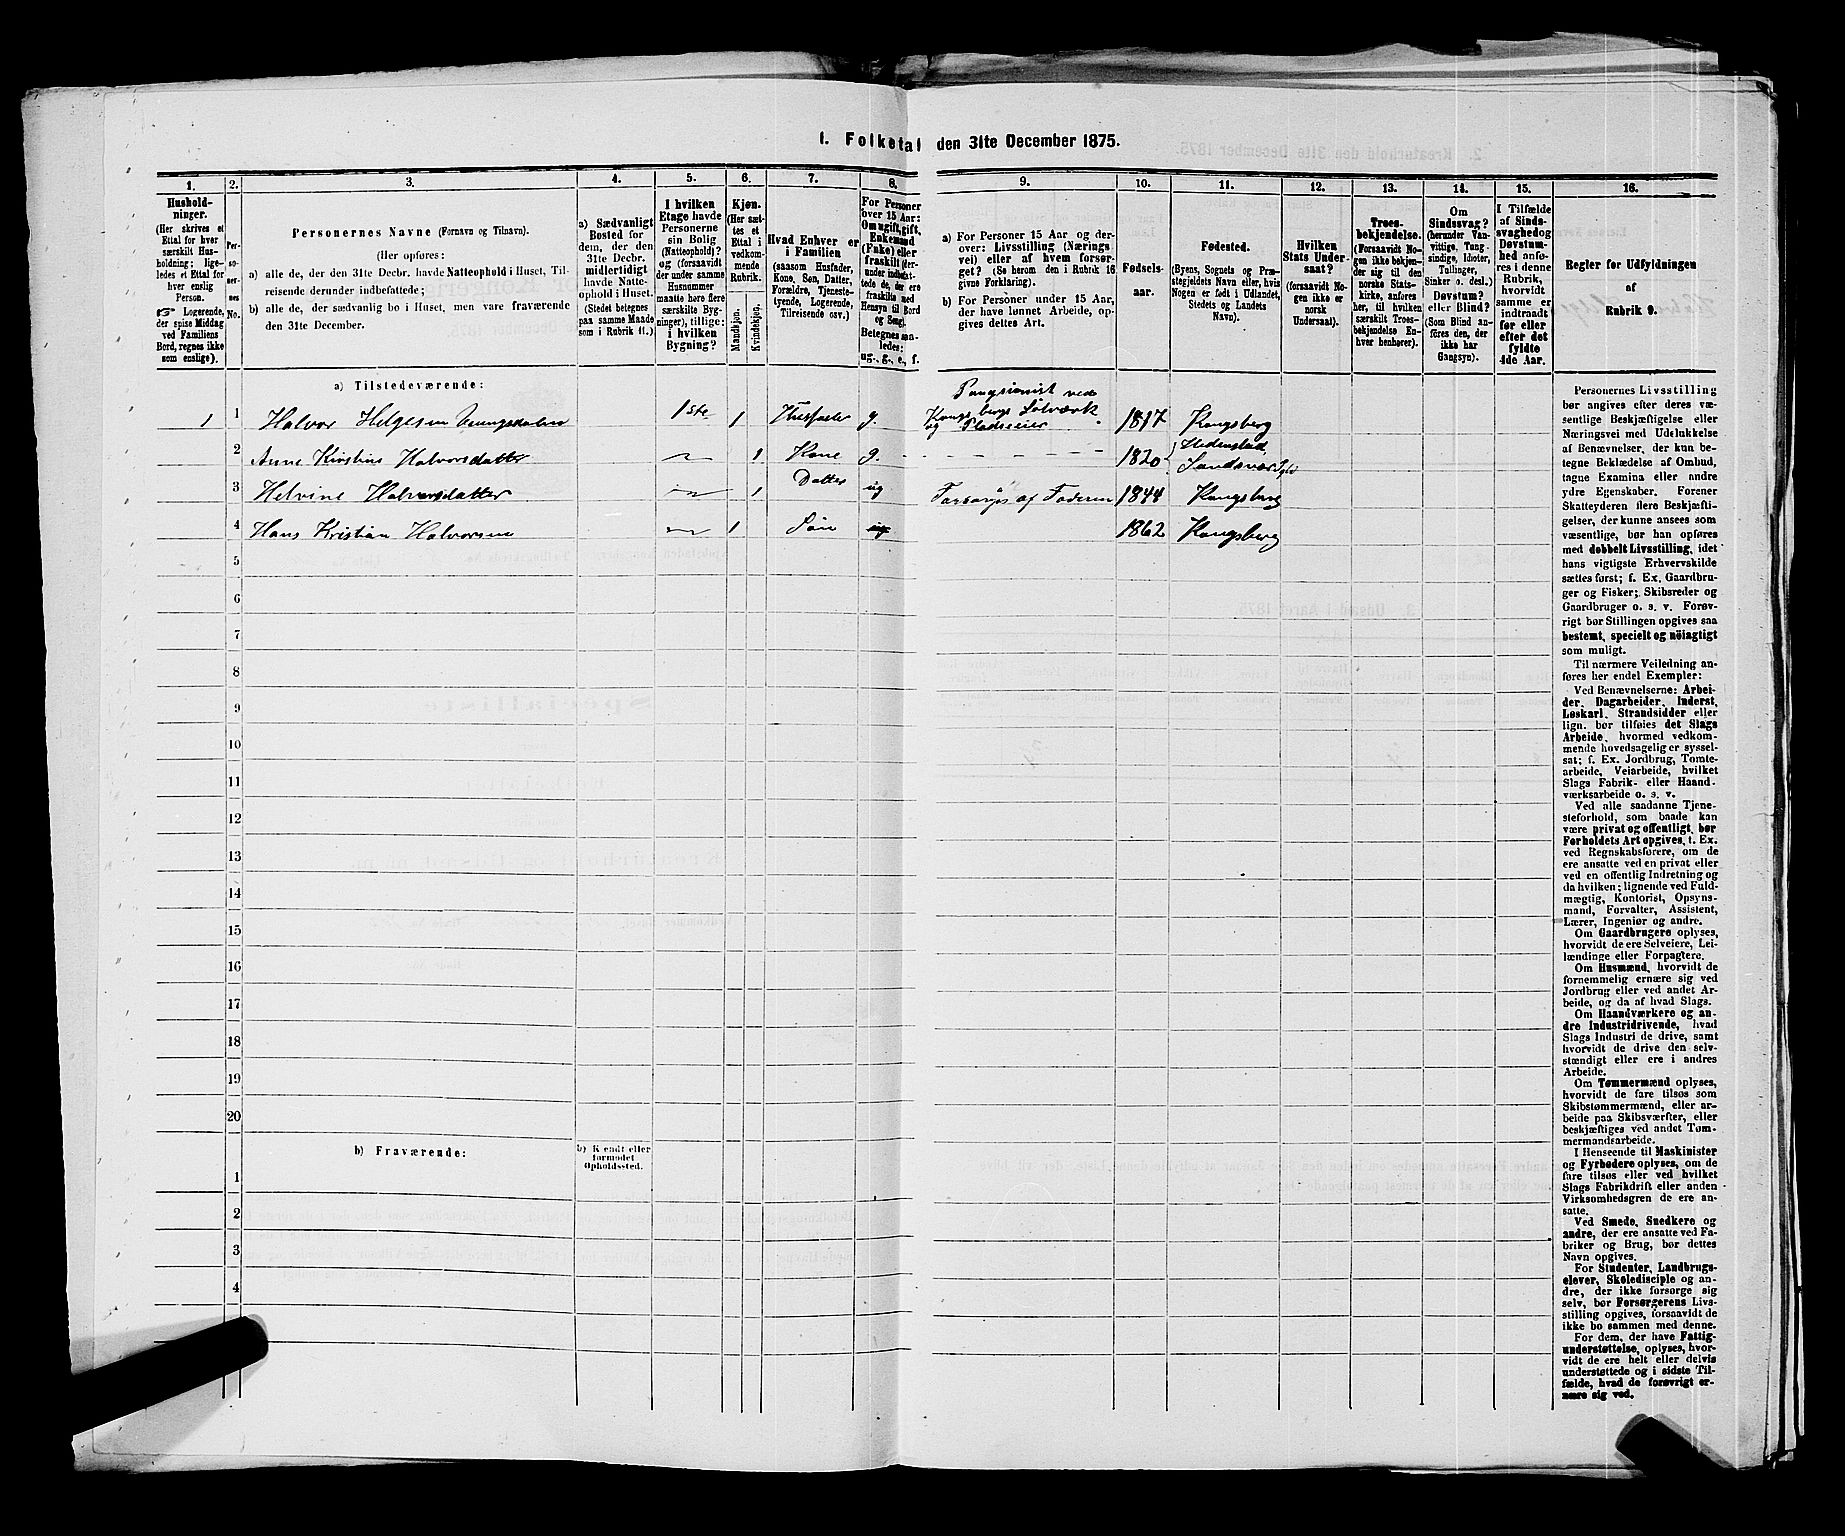 1. Folketal den 31te December 1875.
1.
2.
3.
4.
5.
6.
7.
8.
9.
10.
11.
12.
13.
14.
15.
16.
Hushold-
ninger.
(Her skrives et
Ettal for hver
særskilt Hus-
holdning; lige-
ledes et Ettal for
hver enslig
Person.
☞ Logerende,
der spise Middag
ved Familiens
Bord, regnes ikke
som enslige).
Per-
so-
ner-
nes
No.
Personernes Navne (Fornavn og Tilnavn).
(Her opføres:
a) alle de, der den 31te Decbr. havde Natteophold i Huset, Til-
reisende derunder indbefattede;
b) alle de, der sædvanlig bo i Huset, men vare fraværende
den 31te December.
a) Sædvanligt
Bosted for
dem, der den
31te Decbr.
midlertidigt
havde Natte-
ophold i Huset.
(Stedet betegnes
paa samme Maade
som i Rubrik 11.)
I hvilken
Etage havde
Personerne
sin Bolig
(Natteophold)?
og (forsaavidt
der under samme
Husnummer
maatte høre flere
særskilte Byg-
ninger), tillige:
i hvilken
Bygning?
Kjøn.
(Her sæt-
tes et
Ettal i
vedkom-
mende
Rubrik.
Mandkjøn.
Kvindekjøn.
Hvad Enhver er
i Familien
(saasom Husfader,
Kone, Søn, Datter,
Forældre, Tjeneste-
tyende, Logerende,
Tilreisende osv.)
For Personer
over 15 Aar:
Om ugift, gift,
Enkemand
(Enke) eller
fraskilt (der-
under indbefat-
tede de, der ere
fraskilte med
Hensyn til Bord
og Seng).
Betegnes saa-
ledes:
ug., g., e., f.
a) For Personer 15 Aar og der-
over: Livsstilling (Nærings
vei) eller af hvem forsør-
get? (Se herom den i Rubrik 16
givne Forklaring).
b) For Personer under 15 Aar,
der have lønnet Arbeide, op-
gives dettes Art.
Fødsels-
aar.
Fødested.
(Byens, Sognets og Præ-
stegjeldets Navn eller, hvis
Nogen er født i Udlandet,
Stedets og Landets
Navn).
Hvilken
Stats Under-
saat?
(forsaavidt No-
gen ikke er
norsk
Undersaat).
Troes-
bekjendelse.
(Forsaavidt No-
gen ikke bekjen-
der sig til den
norske Stats-
kirke, anføres
her, til hvilken
særskilt Troes-
bekjendelse En-
hver henhører).
Om
Sindssvag?
(herunder Van-
vittige, Tung-
sindige, Idioter,
Tullinger,
Sinker o. desl.)
Døvstum?
eller Blind?
(Som Blind an-
føres den, der
ikke har
Gangsyn).
I Tilfælde
af Sinds-
svaghed og
Døvstum-
hed anfø-
res i denne
Rubrik,
hvorvidt
samme er
indtraadt
før eller
efter det
fyldte
4de Aar.
Regler for Udfyldningen
af
Rubrik 9.
a) Tilstedeværende:
1 1 Halvor Helgesen 1ste 1 Husfader g. Pangsionist ved Kongsbergs Sølvværk og Pladseeier 1817 Kongsberg
2 Anne Kirstine Halvorsdatter 1 Kone g. 1820 Hedenstad, Sandsvær
3 Helvine Halvorsdatter 1 Datter ug Forsørges af Faderen 1844 Kongsberg
4 Hans Kristian Halvorsen 1 Søn ug 1862 Kongsberg
5
6
7
8
9
10
11
12
13
14
15
16
17
18
19
20
b) Fraværende:
b) Kjendt eller
formodet
Opholdssted.
1
2
3
4
Personernes Livsstilling
bør angives efter deres væ-
sentlige Beskjæftigelse eller
Næringsvei med Udelukkelse
af Benævnelser, der kun be-
tegne Beklædelse af Ombud,
tagne Examina eller andre
ydre Egenskaber. Forener
Skatteyderen flere Beskjæfti-
gelser, der kunne ansees som
væsentlige, bør han opføres
med dobbelt Livsstilling, idet
hans vigtigste Erhvervskilde
sættes først; f. Ex. Gaardbru-
ger og Fisker; Skibsreder og
Gaardbruger o. s. v. Forøv-
rigt bør Stillingen opgives saa
bestemt, specielt og nöiagtigt
som muligt.
Til nærmere Veiledning an-
føres her endel Exempler:
Ved Benævnelserne: Arbei-
der, Dagarbeider, Inderst,
Løskarl, Strandsidder eller
lign. bør tilføies det Slags
Arbeide, hvormed vedkom-
mende hovedsagelig er syssel-
sat; f. Ex. Jordbrug, Tomte-
arbeide, Veiarbeide, hvilket
Slags Fabrik- eller Haand-
værksarbeide o. s. v.
Ved alle saadanne Tjene-
steforhold, som baade kan
være privat og offentligt, bør
Forholdets Art opgives, f. Ex.
ved Regnskabsførere, om de
ere ansatte ved en privat eller
ved en offentlig Indretning og
da hvilken; lignende ved Fuld-
mægtig, Kontorist, Opsyns-
mand, Forvalter, Assistent,
Lærer, Ingeniør og andre.
Om Gaardbrugere oplyses,
hvorvidt de ere Selveiere, Lei-
lændinge eller Forpagtere.
Om Husmænd, hvorvidt de
fornemmelig ernære sig ved
Jordbrug eller ved andet Ar-
beide, og da af hvad Slags.
Om Haandværkere og an-
dre Industridrivende, hvad
Slags Industri de drive, samt
hvorvidt de drive den selv-
stændigt eller ere i andres
Arbeide.
Om Tømmermænd oplyses,
hvorvidt de fare tilsøs som
Skibstømmermænd, eller ar-
beide paa Skibsværfter, eller
beskjæftiges ved andet Tøm-
mermandsarbeide.
I Henseende til Maskinister
og Fyrbødere oplyses, om de
fare tilsøs eller ved hvilket
Slags Fabrikdrift eller anden
Virksomhedsgren de ere an-
satte.
Ved Smede, Snedkere og
andre, der ere ansatte ved Fa-
briker og Brug, bør dettes
Navn opgives.
For Studenter, Landbrugs-
elever, Skoledisciple og an-
dre, der ikke forsørge sig
selv, bør Forsørgerens Livs-
stilling opgives, forsaavidt de
ikke bo sammen med denne.
For dem, der have Fattig-
understøttelse, oplyses, hvor-
vidt de ere helt eller delvis
understøttede og i sidste Til-
fælde, hvad de forøvrigt er-
nære sig ved.